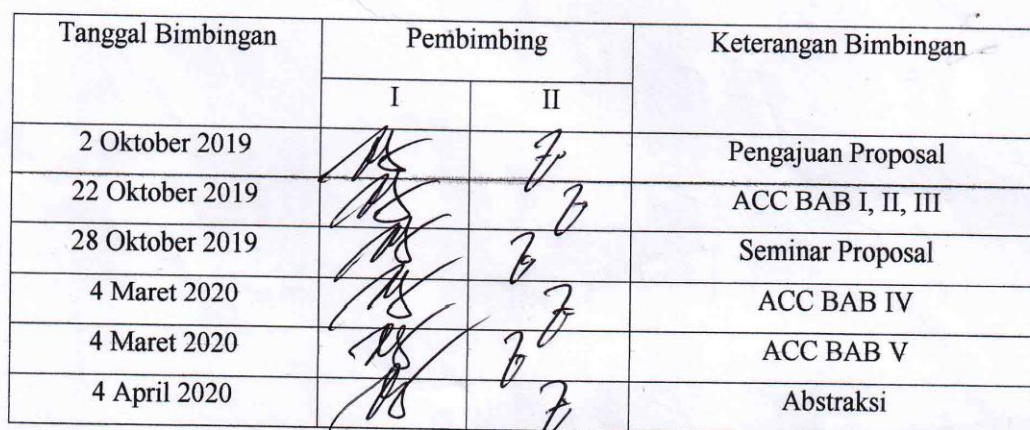 Tanggal Bimbingan Pembimbing Keterangan Bimbingan
I II
2 Oktober 2019 Pengajuan Proposal
22 Oktober 2019 ACC BAB I, II, III
28 Oktober 2019 Seminar Proposal
4 Maret 2020 ACC BAB IV
4 Maret 2020 ACC BAB V
4 April 2020 Abstraksi